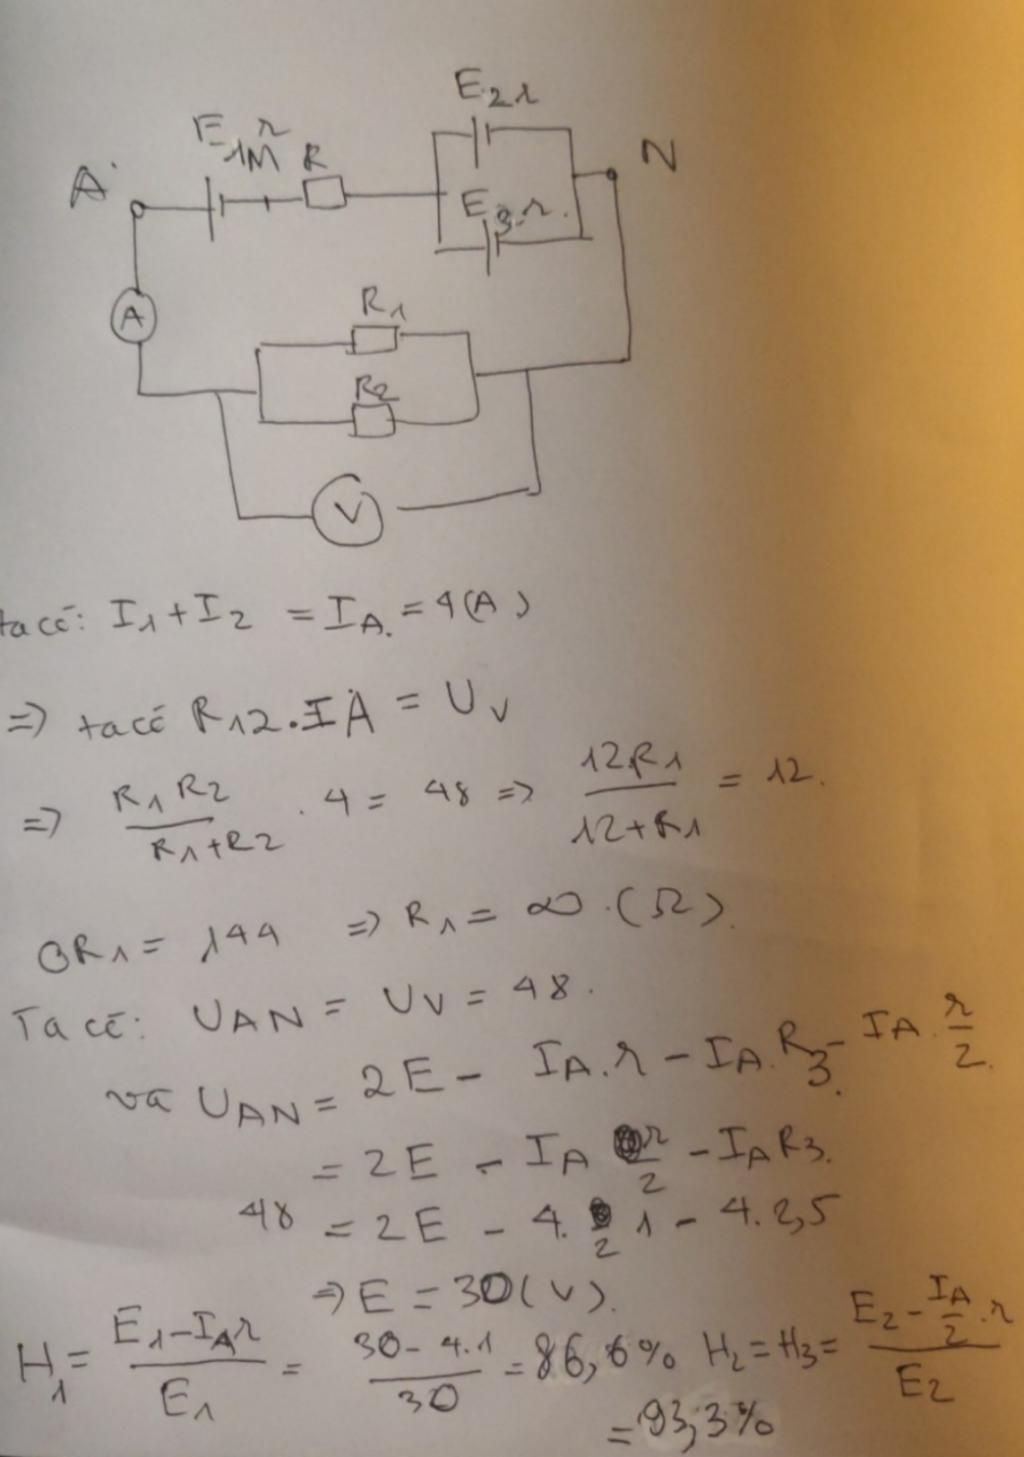 E₂ r
E₁ r
M R
A
N
E₃ r.
A
R₁
R₂
V
ta có: I₁ + I₂ = I_A. = 4(A)
=> ta có R₁₂.I_A = U_V
=> R₁R₂/(R₁+R₂) . 4 = 48 => 12R₁/(12+R₁) = 12.
0R₁ = 144 => R₁ = ∞.(Ω).
Ta có: U_AN = U_V = 48.
và U_AN = 2E - I_A.r - I_A.R₃ - I_A.r/2.
= 2E - I_A r/2 - I_A R₃.
48 = 2E - 4. /2 1 - 4.2,5
=> E = 30(V).
H₁ = (E₁-I_A r)/E₁ = (30-4.1)/30 = 86,6% H₂ = H₃ = (E₂ - I_A/2 .r)/E₂
= 93,3%